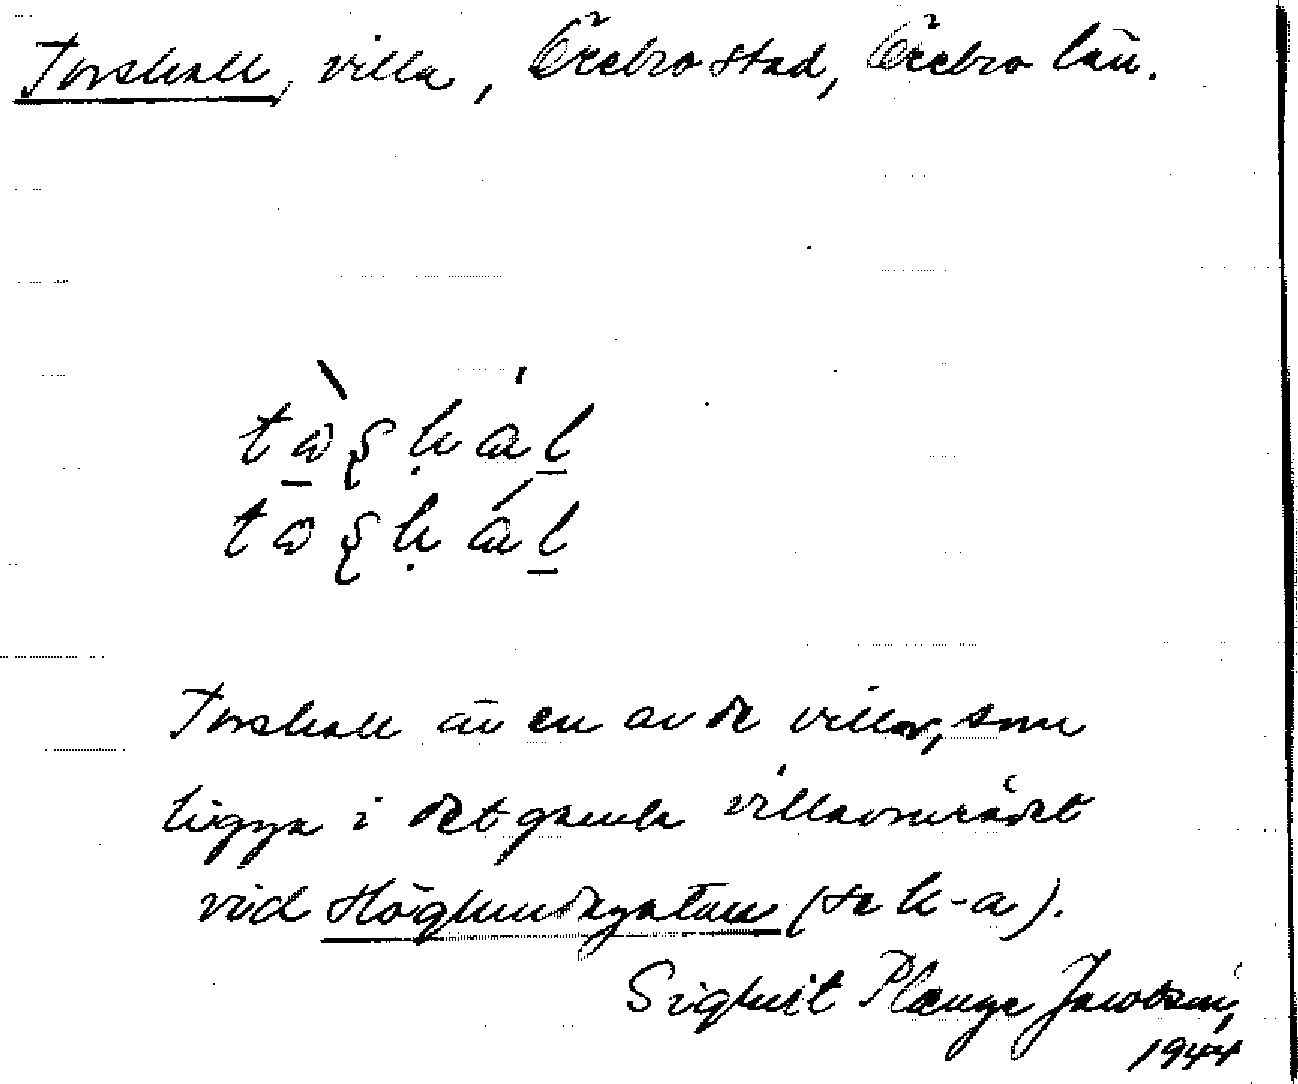 Torshall, villa, Örebro stad, Örebro län.
Torshall är en av de villor, som
ligga i det gamla villaområdet
vid Höglundagatan (se k-a).
Sigurit Plænge Jacobson,
1944